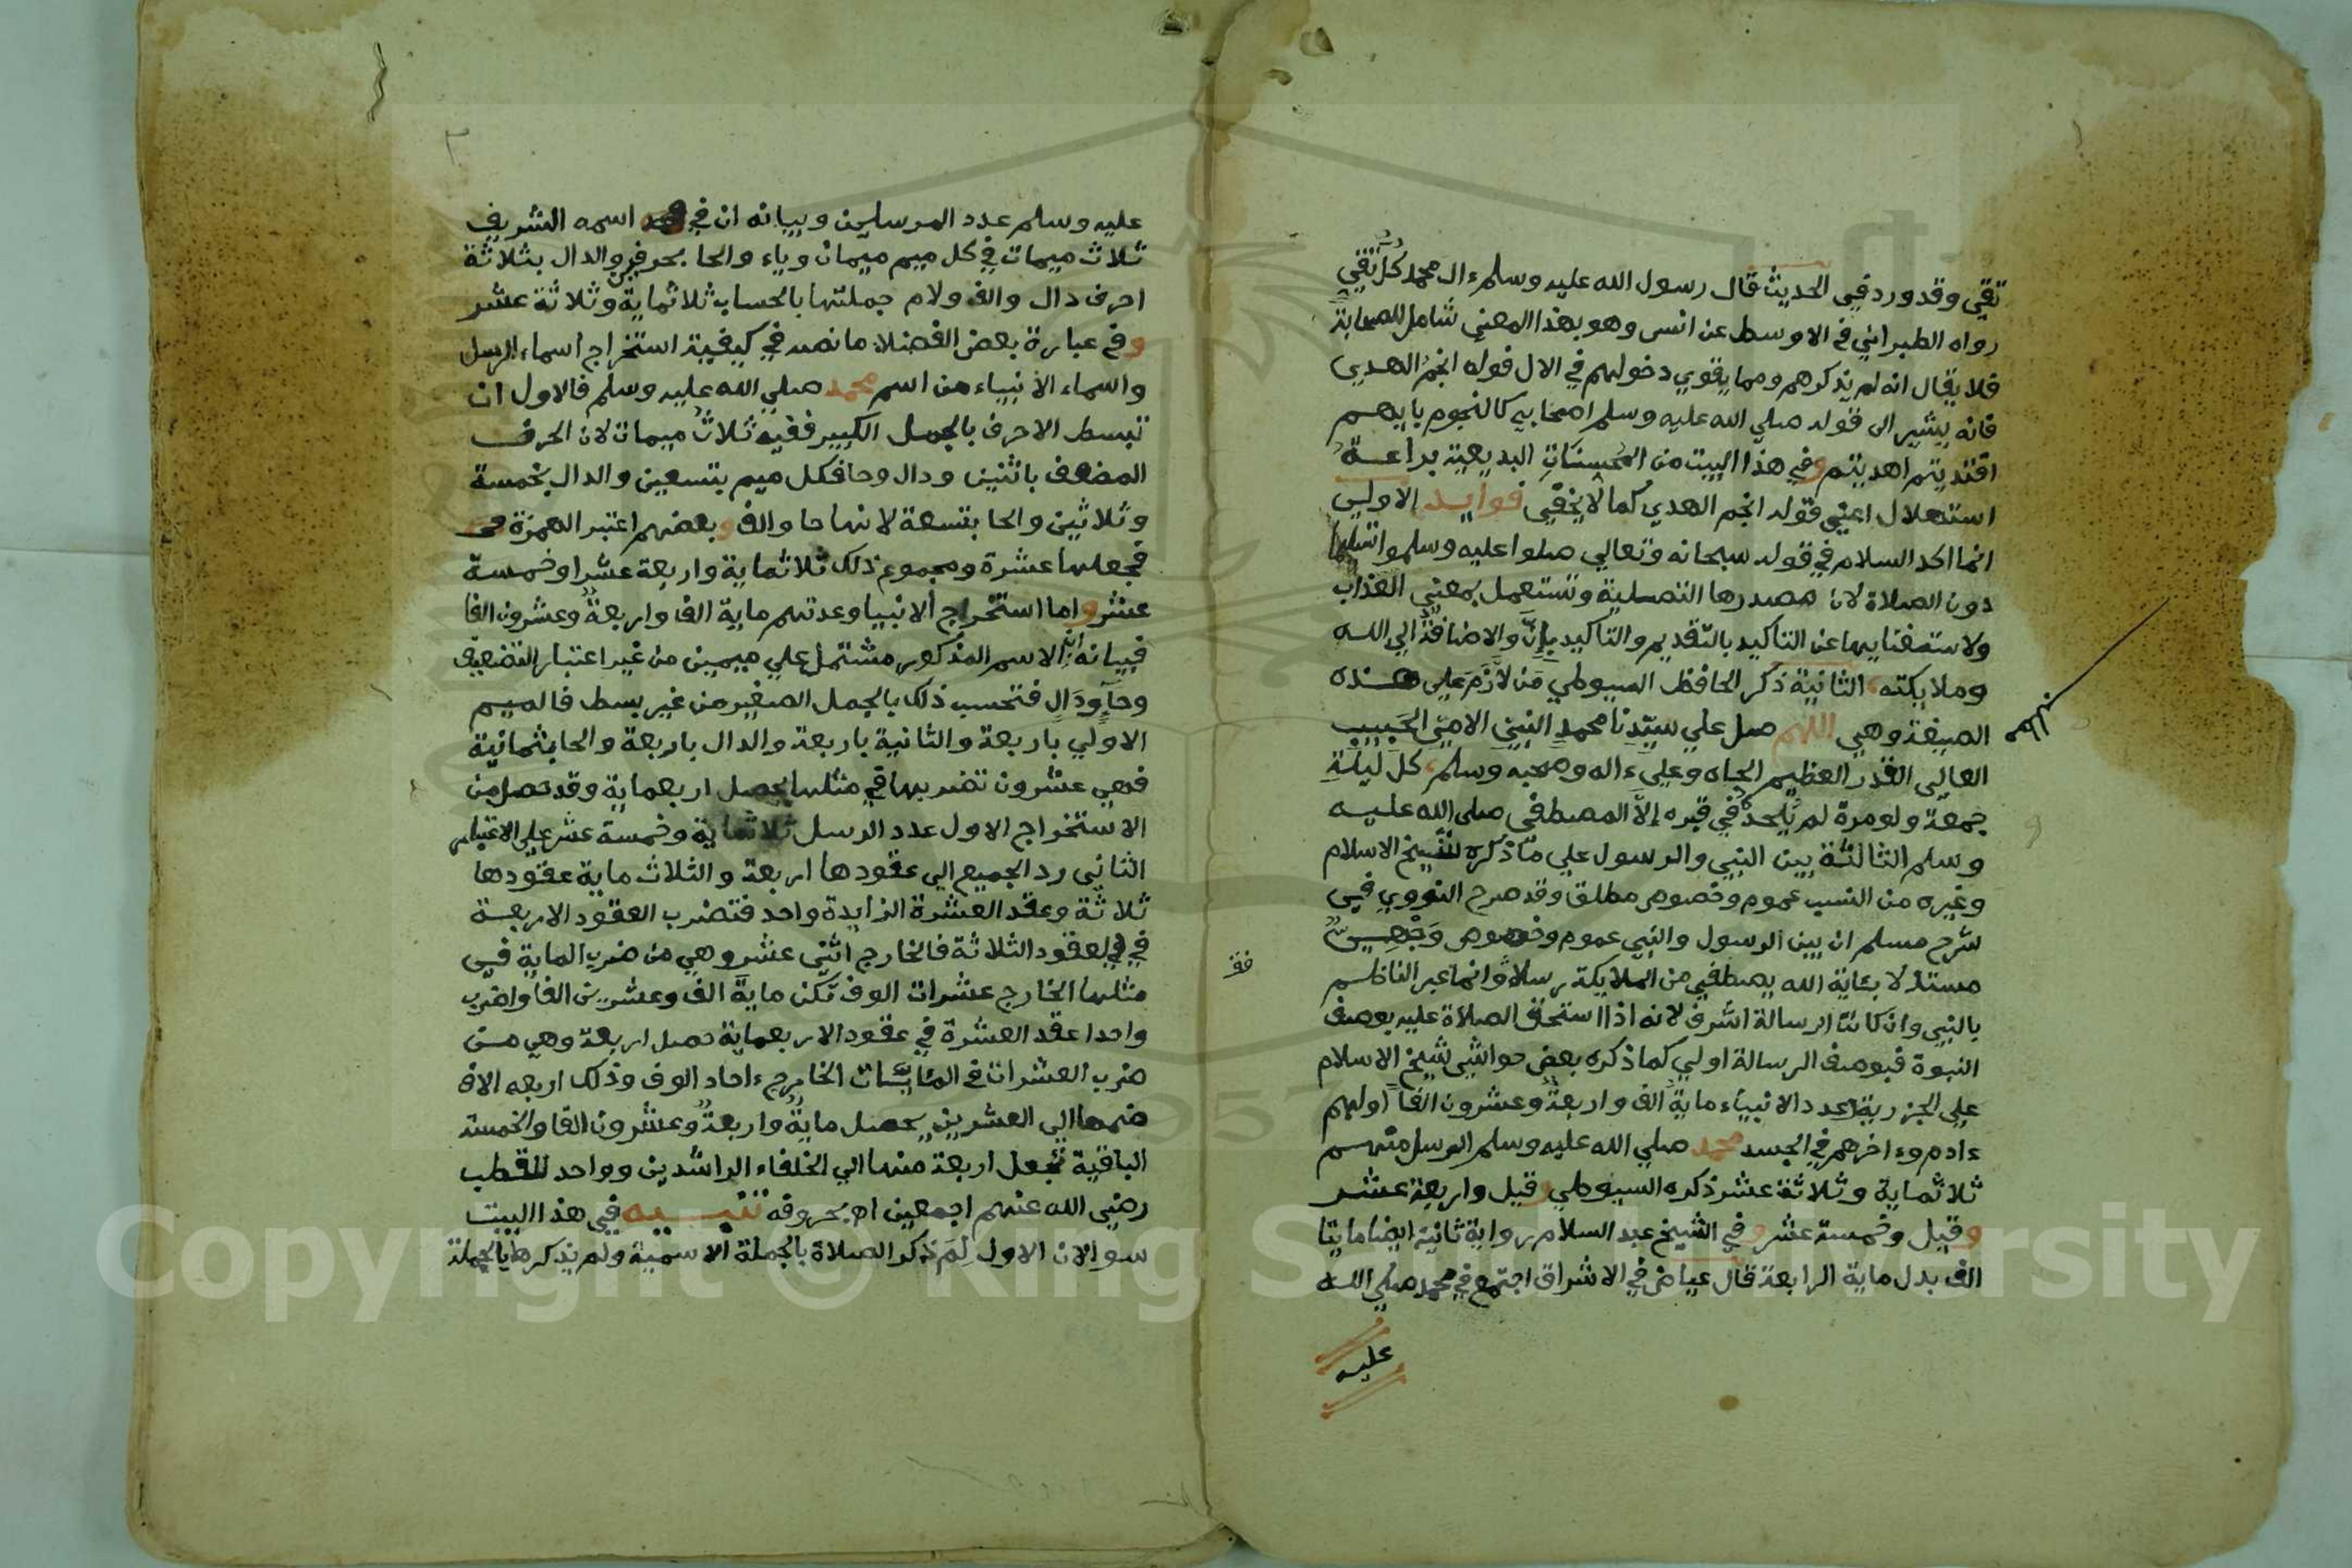 تقي وقد ورد في الحديث قال رسول الله عليه وسلم ءال محمد كل تقي
رواه الطبراني في الاوسط عن انس وهو بهذا المعني شامل للصحابة
فلا يقال انه لم يذكرهم ومما يقوي دخولهم في الال قوله انجم الهدي
فانه يشير الى قوله صلي الله عليه وسلم اصحابي كالنجوم بايهم
اقتديتم اهديتم وفي هذا البيت من المحسنات البديعية براعة
استهلال اعني قوله انجم الهدي كما لا يخفي فوايد الاولي
انما اكد السلام في قوله سبحانه وتعالي صلوا عليه وسلموا تسليما
دون الصلاة لان مصدرها التصلية وتستعمل بمعني العذاب
ولاستغنايها عن التاكيد بالتقديم والتاكيد بإن والاضافة الي الله
وملايكته الثانية ذكر الحافظ السيوطي من لازم علي هذه
الصيغة وهي اللهم صل علي سيدنا محمد النبي الامي الحبيب
العالي القدر العظيم الجاه وعلي ءاله وصحبه وسلم كل ليلة
جمعة ولو مرة لم يلحده في قبره إلا المصطفي صلي الله عليه
وسلم الثالثة بين النبي والرسول علي ما ذكره شيخ الاسلام
وغيره من النسب عموم وخصوص مطلق وقد صرح النووي في
شرح مسلم ان بين الرسول والنبي عموم وخصوص وجهي
مستدلا بئاية الله يصطفي من الملايكة رسلا وانما عبر الناظم
بالنبي وان كانت الرسالة اشرف لانه اذا استحق الصلاة عليه بوصف
النبوة فبوصف الرسالة اولي كما ذكره بعض حواشي شيخ الاسلام
علي الجزرية عدد الانبياء ماية الف واربعة وعشرون الفا اولهم
ءادم وءاخرهم في الجسد محمد صلي الله عليه وسلم الرسل منهم
ثلاثماية وثلاثة عشر ذكره السيوطي وقيل واربعة عشر
وقيل وخمسة عشر وفي الشيخ عبد السلام رواية ثانية ايضا مايتا
الف بدل ماية الرابعة قال عياض في الاشراق اجتمع في محمد صلي الله
عليه
عليه وسلم عدد المرسلين وبيانه ان في اسمه الشريف
ثلاث ميمات في كل ميم ميمان وياء والحا بحرفين والدال بثلاثة
احرف دال والف ولام جملتها بالحساب ثلاثماية وثلاثة عشر
وفي عبارة بعض الفضلا ما نصه في كيفية استخراج اسماء الرسل
واسماء الانبياء من اسم محمد صلي الله عليه وسلم فالاول ان
تبسط الاحرف بالجمل الكبير ففيه ثلاث ميمات لان الحرف
المضعف باثنين ودال وحا فكل ميم بتسعين والدال بخمسة
وثلاثين والحا بتسعة لانها حا والف وبعضهم اعتبر الهمزة
فجعلها عشرة ومجموع ذلك ثلاثماية واربعة عشر او خمسة
عشر واما استخراج الانبيا وعدتهم ماية الف واربعة وعشرون الفا
فبيانه ان الاسم المذكور مشتمل علي ميمين من غير اعتبار التضعيف
وحاء ودال فتحسب ذلك بالجمل الصغير من غير بسط فالميم
الاولي باربعة والثانية باربعة والدال باربعة والحا بثمانية
فهي عشرون تضربها في مثلها يحصل اربعماية وقد تحصل من
الاستخراج الاول عدد الرسل ثلاثماية وخمسة عشر علي الاعتبار
الثاني رد الجميع الي عقودها اربعة والثلاث ماية عقودها
ثلاثة وعقد العشرة الزايدة واحد فتضرب العقود الاربعة
في العقود الثلاثة فالخارج اثني عشر وهي من ضرب الماية في
مثلها الخارج عشرات الوف تكن ماية الف وعشرين الفا واضرب
واحدا عقد العشرة في عقود الاربعماية حصل اربعة وهي من
ضرب العشرات في المئات الخارج ءاحاد الوف وذلك اربعه الاف
ضمها الي العشرين يحصل ماية واربعة وعشرون الفا والخمسة
الباقية تجعل اربعة منها الي الخلفاء الراشدين وواحد للقطب
رضي الله عنهم اجمعين اه بحروفه تنبيه في هذا البيت
سوالان الاول لم ذكر الصلاة بالجملة الاسمية ولم يذكرها بالجملة
Copyright © King Saud University